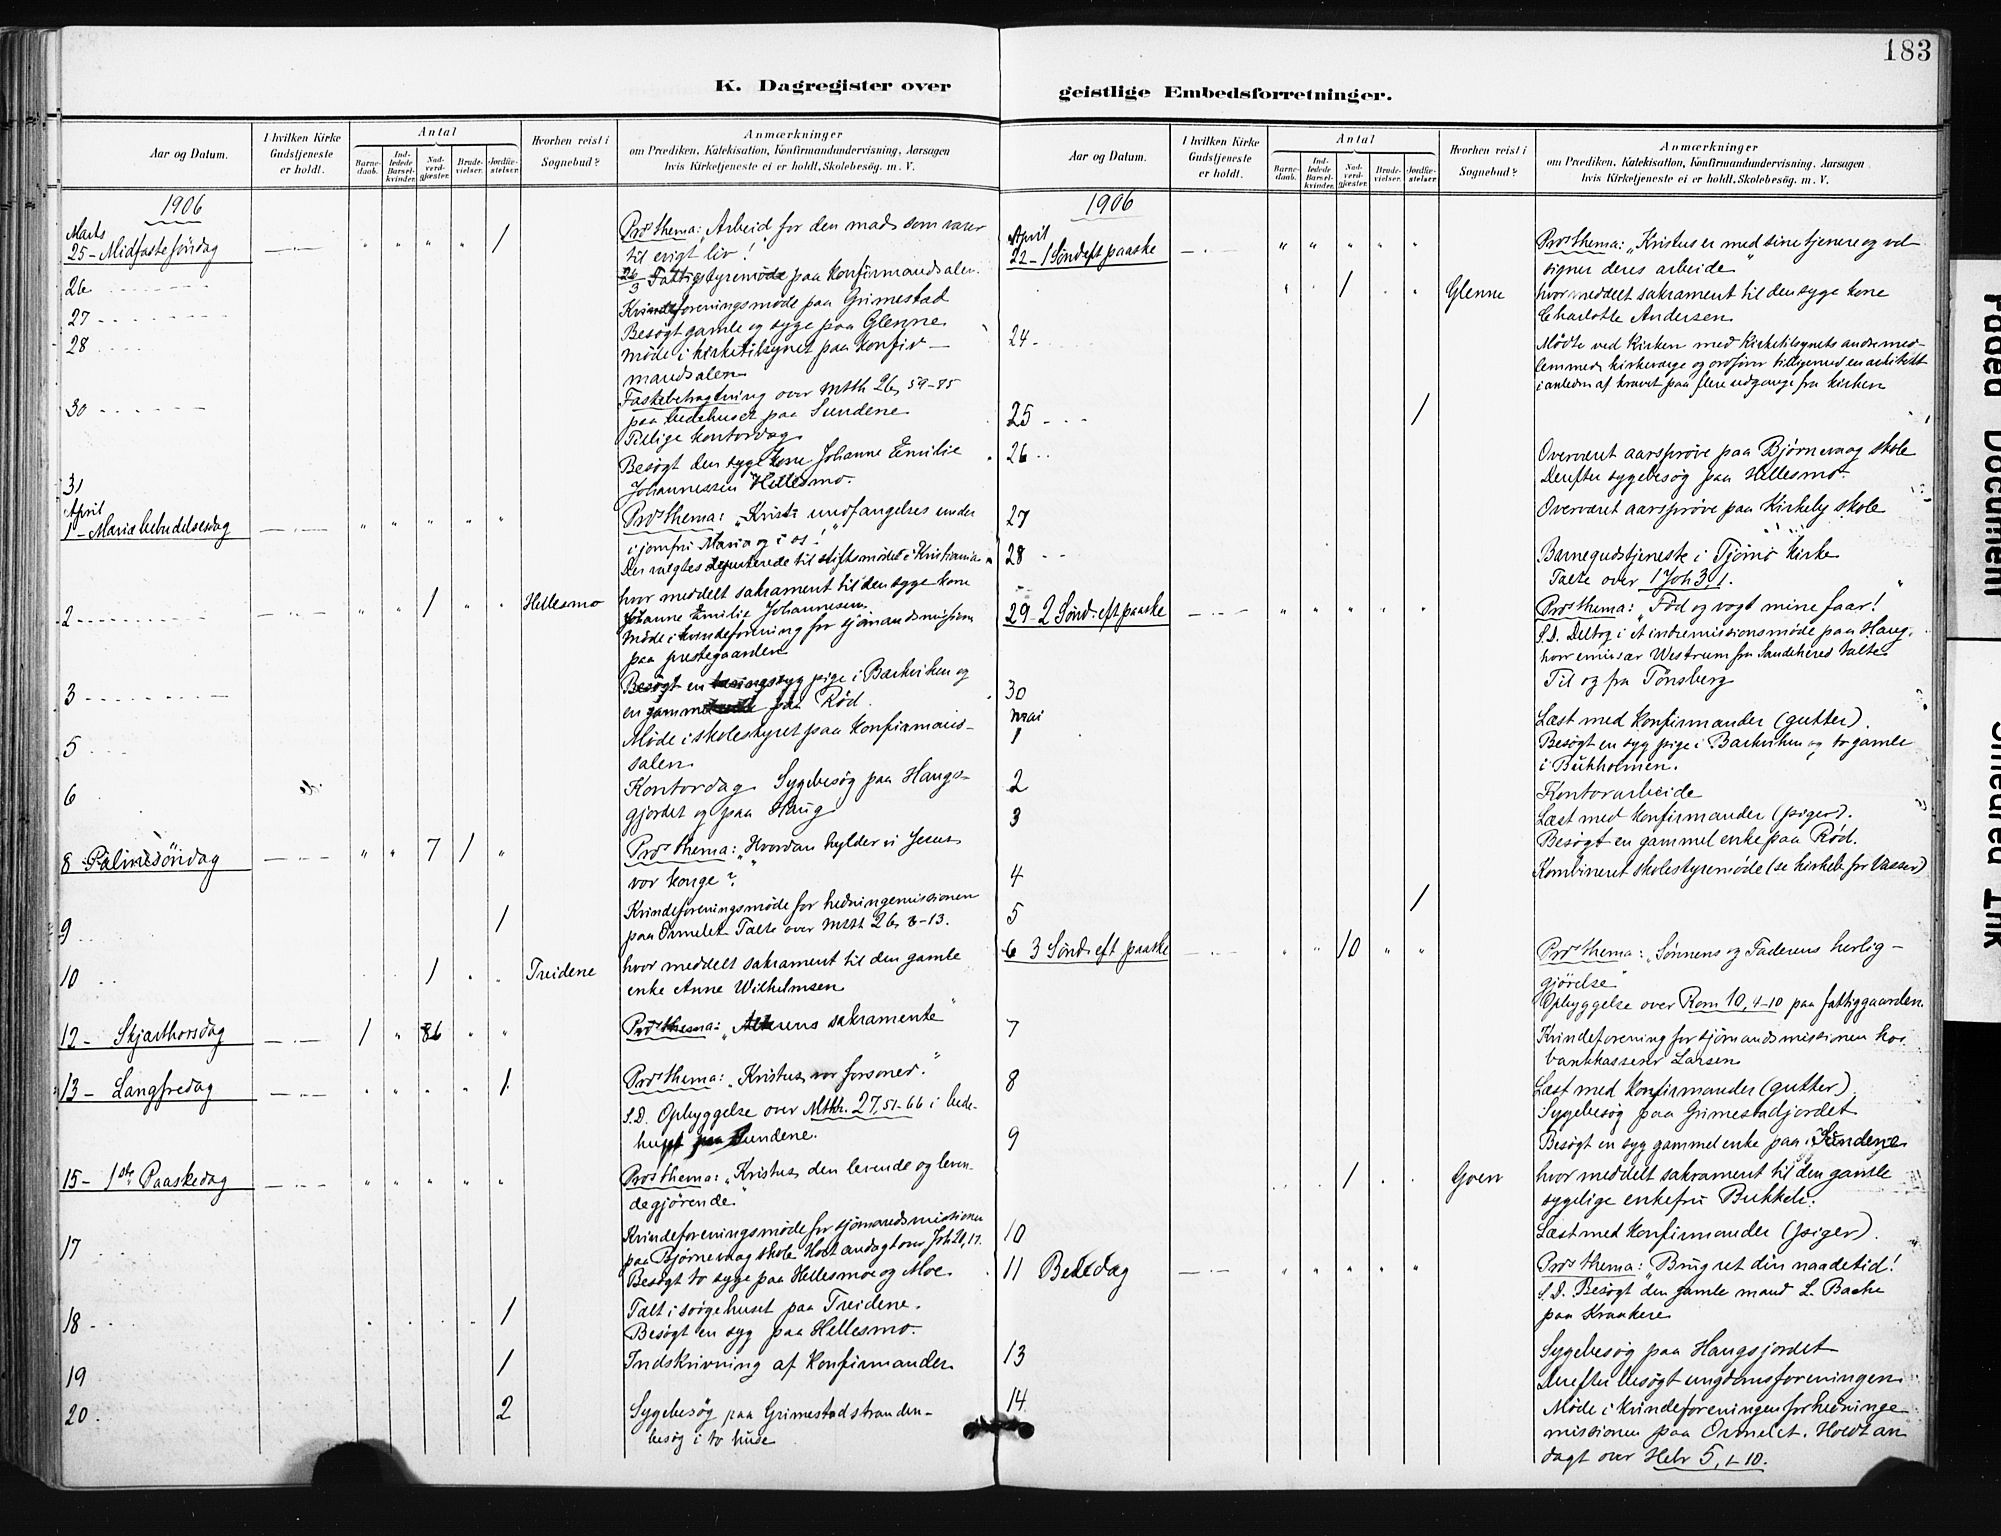 183
K. Dagregister over
geistlige Embedsforretninger.
Aar og Datum.
I hvilken Kirke Gudstjeneste er holdt.
Antal
Barnedaab.
Indledede Barselkvinder.
Nadverdgjæster.
Brudevielser.
Jordfæstelser.
Hvorhen reist i Sognebud?
Anmærkninger
om Prædiken, Katekisation, Konfirmandundervisning, Aarsagen
hvis Kirketjeneste ei er holdt, Skolebesøg. m. V.
1906
Marts
25 - Midfastesöndag - " - " " " " 1 Prds thema: "Arbeid for den mad som varer
til evigt liv!"
26 26/3 Fattigstyremöde paa Konfirmandsalen.
27 Kvindeforeningsmøde paa Grimestad
Besøgt gamle og syge paa Glenne
28 Møde i kirketilsynet paa Konfir-
mandsalen
30 Fastebetragtning over Mtth 26, 59-75
paa bedehuset paa Sundene
Tillige kontordag
31 Besøgt den syge kone Johanne Emilie
Johannessen Hellesmo.
April
1 - Maria bebudelsesdag - " - " " " " " Prds thema: "Kristi undfangelse under
i jomfru Maria og i os!"
Der valgtes deputerede til stiftsmødet i Kristiania
2 " " 1 " " Hellesmo hvor meddelt sakrament til den syge kone
Johanne Emilie Johannesen
Møde i kvindeforening for sjömandsmission
paa prestegaarden
3 Besøgt en syg pige i Bækviken og
en gammel paa Rød.
5 Møde i skolestyret paa Konfirmand-
salen
6 Kontordag Sygebesøg paa Haugs-
gjordet og paa Haug
8 Palmesöndag - " - " " 7 1 " Prds thema: "Hvordan hylder vi Jesus
vor konge?"
9 1 Kvindeforeningsmøde for hedningemissionen
paa Ormelet Talte over Mtth 26, 8-13.
10 1 Treidene hvor meddelt sakrament til den gamle
enke Anne Wilhelmsen
12 - Skjærthorsdag - " - 1 " 86 " " Prds thema: "Alterens sakramente"
13 - Langfredag - " - " " " " 1 Prds thema: "Kristus vor forsoner."
S.D. Opbyggelse over Mtth. 27, 51-66 i bede-
huset paa Sundene.
15 - 1ste Paaskedag - " - " " " " " Prds thema: "Kristus den levende og leven-
degjørende"
17 Kvindeforeningsmøde for sjömandsmissionen
paa Bjørnevaag skole Holt andagt over Joh 20, 17.
Besøgt to syge paa Hellesmo og Moe
18 1 Talt i sørgehuset paa Treidene.
Besøgt en syg paa Hellesmo.
19 1 Indskrivning af Konfirmander
20 2 Sygebesøg paa Grimestadstranden-
besøg i to huse
Aar og Datum.
I hvilken Kirke Gudstjeneste er holdt.
Antal
Barnedaab.
Indledede Barselkvinder.
Nadverdgjæster.
Brudevielser.
Jordfæstelser.
Hvorhen reist i Sognebud?
Anmærkninger
om Prædiken, Katekisation, Konfirmandundervisning, Aarsagen
hvis Kirketjeneste ei er holdt, Skolebesøg. m. V.
1906
April
22 - 1 Sönd eft paaske - " - " " " " " Prds thema: "Kristus er med sine tjenere og vel-
signer deres arbeide"
1 Glenne hvor meddelt sakrament til den syge kone
Charlotte Andersen
24 Mødte ved kirken med kirketilsynets andre med-
lemmer, kirkeværge og ordfører tilligemed en arkitekt
i anledn af kravet paa flere udgange fra kirken
25 1
26 Overværet aarsprøve paa Bjørnevaag skole
Derefter sygebesøg paa Hellesmo.
27 Overværet aarsprøve paa Kirkeby skole
28 Barnegudstjeneste i Tjömö Kirke
Talte over 1 Joh 3, 1.
29 - 2 Sönd. eft paaske - " - " " " " " Prds thema: "Fød og vogt mine faar!"
S.D. Deltog i et indremissionsmøde paa Haug,
hvor emissær Westrum fra Sandeherred talte
30 Til og fra Tönsberg
Mai
1 Læst med konfirmander (gutter).
Besøgt en syg pige i Bækviken og to gamle
i Bukholmen.
2 Kontorarbeide
3 Læst med konfirmander (piger).
Besøgt en gammel enke paa Rød.
4 Kombineret skolestyremøde (se kirkeb. for Vasser)
5 1
6 3 Sönd. eft paaske - " - " " 10 " " Prds thema: "Sønnens og Faderens herlig-
gjörelse"
Opbyggelse over Rom 10, 4-10 paa fattiggaarden.
7 Kvindeforening for sjömandsmissionen hos
bankkasserer Larsen
8 Læst med konfirmander (gutter)
Sygebesøg paa Grimestadjordet
9 Besøgt en syg gammel enke paa Sundene
1 Goen hvor meddelt sakrament til den gamle
sygelige enkefru Bukkele.
10 Læst med konfirmander (piger).
11 Bededag - " - " " " " " Prds thema: "Brug ret din naadetid!"
S.D. Besøgt den gamle mand L. Bache
paa Kraakere
13 Sygebesøg paa Haugsjordet
Derefter besøgt ungdomsforeningen
14 Møde i Kvindeforeningen for hedninge
missionen paa Ormelet. Holdt an
dagt over Hebr 5, 1-10.
Faded Document
Smeared Ink